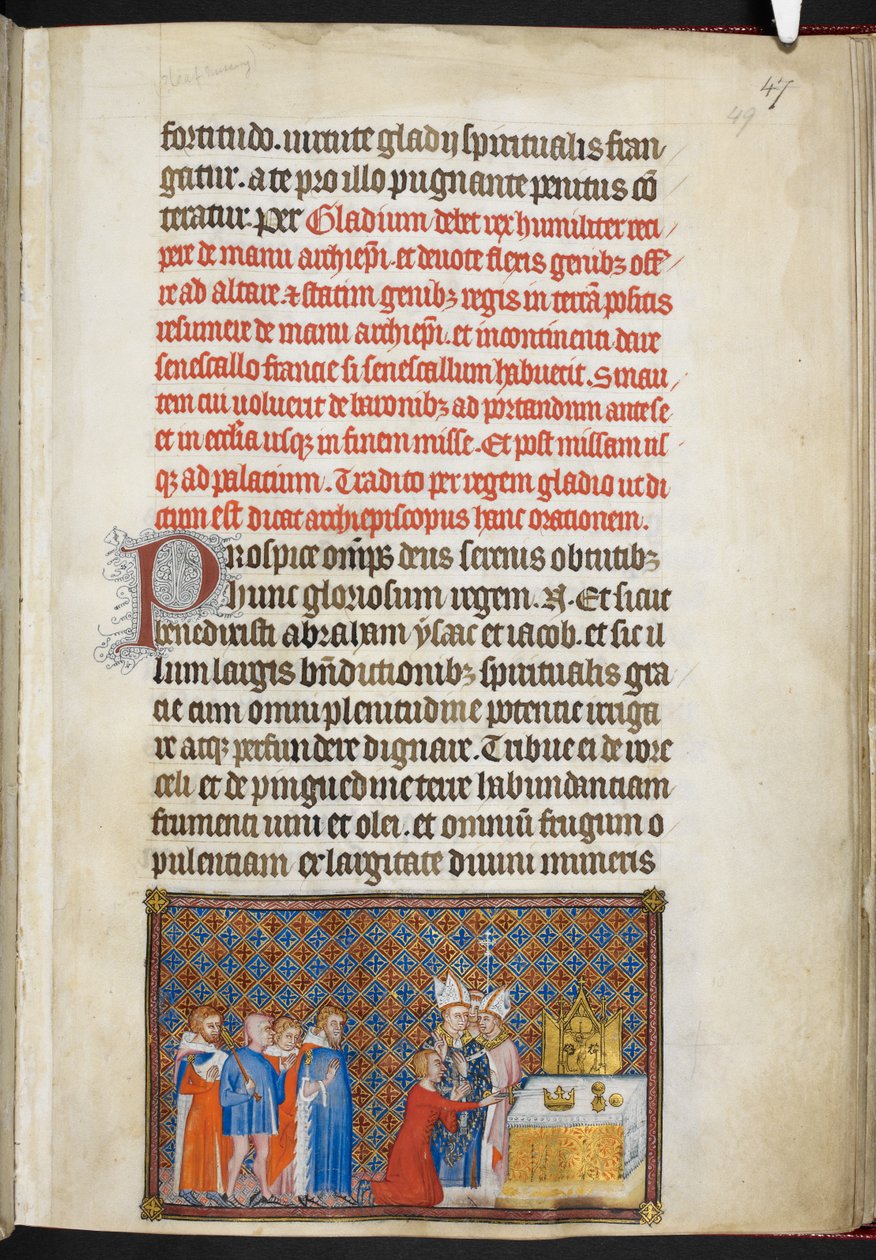 (1 leaf missing)
47
49
fortitudo. uirtute gladij spiritualis fran
gatur. a te pro illo pugnante penitus cō
teratur. Per Gladium debet rex humiliter reci
pere de manu archiep̄i. et deuote flexis genibꝫ offer
re ad altare. ⁊ statim genibꝫ regis in terrā positis
resumere de manu archiep̄i. et incontinenti dare
senescallo francie si senescallum habuerit. Sin au
tem cui uoluerit de baronibꝫ ad portandum ante se
et in eccl̄ia usqꝫ in finem misse. Et post missam us
qꝫ ad palacium. Tradito per regem gladio ut di
ctum est dicat archiepiscopus hanc orationem.
Prospice om̄ps deus serenis obtutibꝫ
hunc gloriosum regem. N. Et sicut
benedixisti abraham ẏsaac et iacob. et sic il
lum largis bn̄dictionibꝫ spiritualis gra
cie cum omni plenitudine potencie irriga
re atqꝫ perfundere dignare. Tribue ei de rore
celi et de pinguedine terre habundanciam
frumenti uini et olei. et omniū frugum o
pulentiam ex largitate diuini muneris